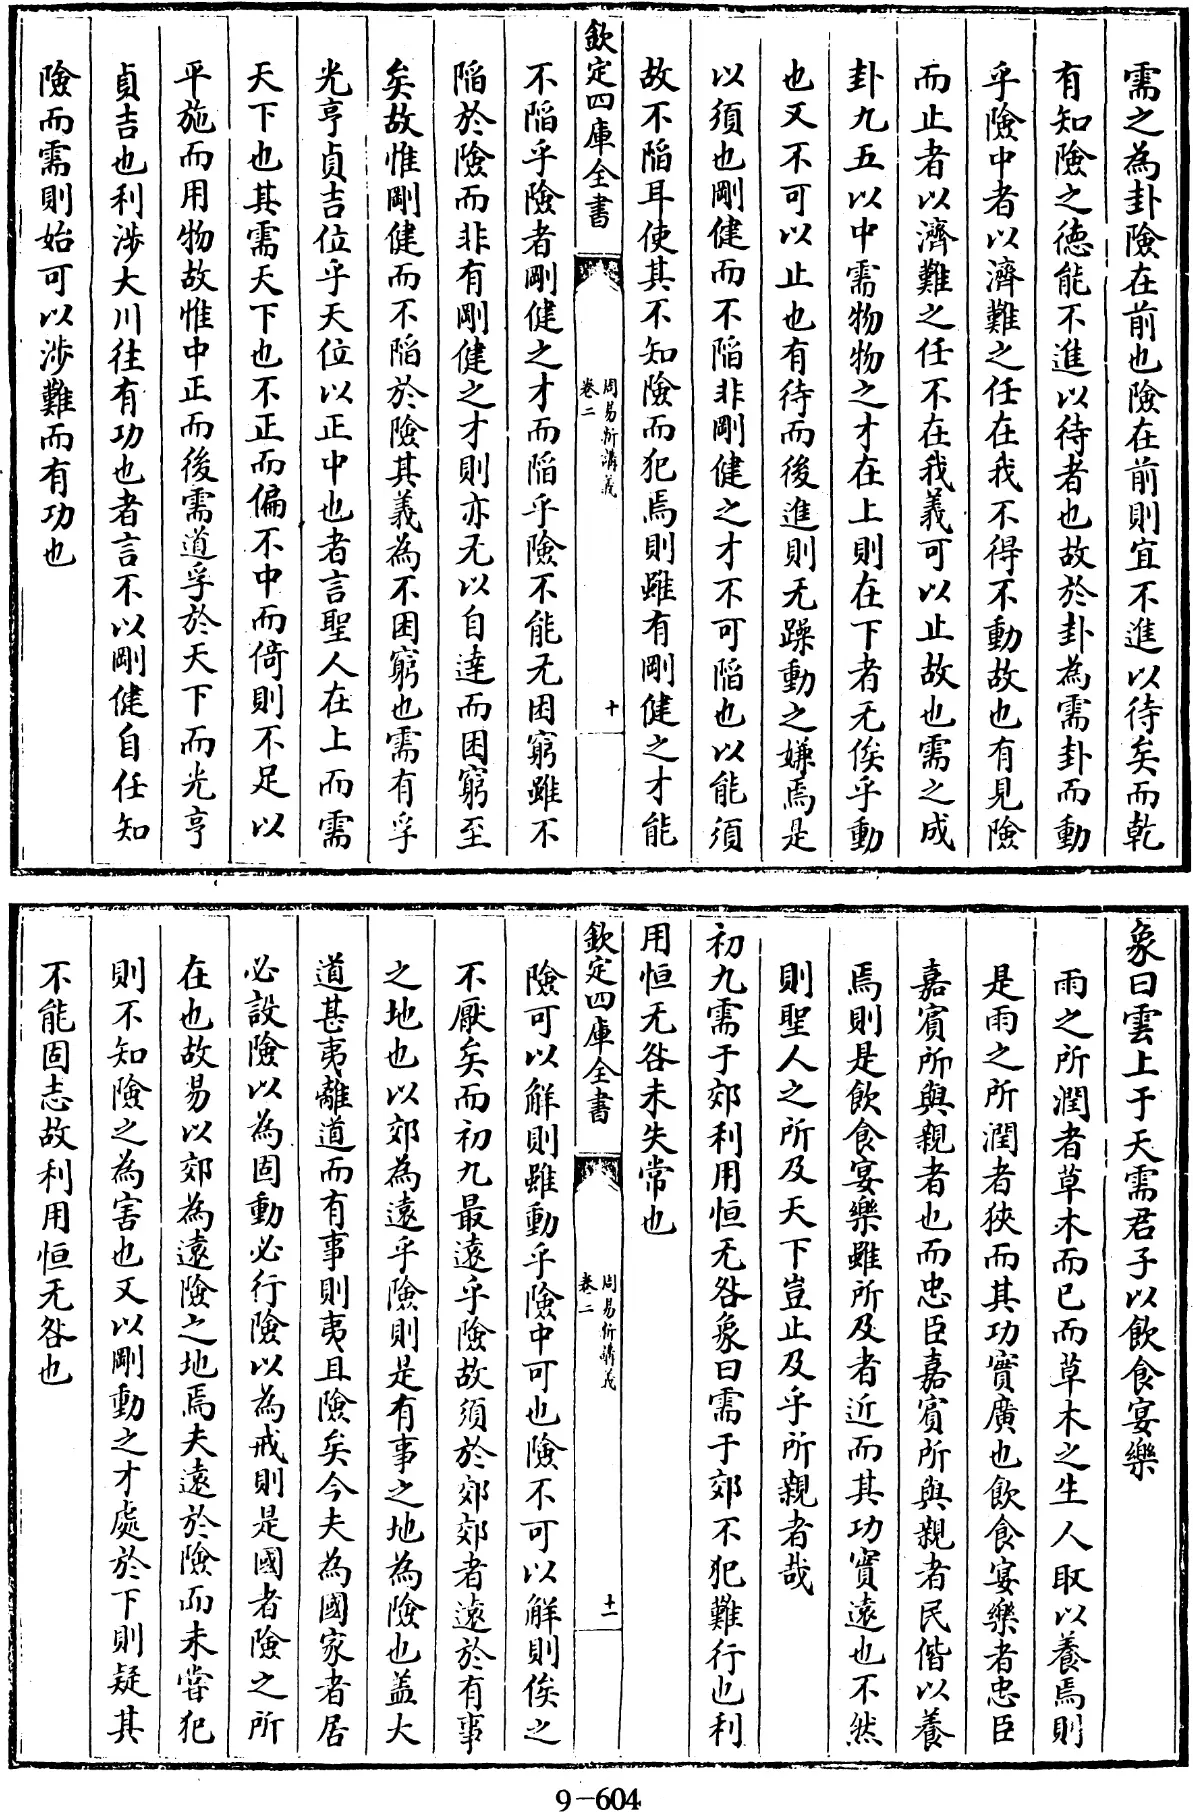 需之為卦險在前也險在前則宜不進以待矣而乾
有知險之德能不進以待者也故於卦為需卦而動
乎險中者以濟難之任在我不得不動故也有見險
而止者以濟難之任不在我義可以止故也需之成
卦九五以中需物物之才在上則在下者无俟乎動
也又不可以止也有待而後進則无躁動之嫌焉是
以須也剛健而不陷非剛健之才不可陷也以能須
故不陷耳使其不知險而犯焉則雖有剛健之才能
欽定四庫全書
周易新講義
卷二
十
不陷乎險者剛健之才而陷乎險不能无困窮雖不
陷於險而非有剛健之才則亦无以自達而困窮至
矣故惟剛健而不陷於險其義為不困窮也需有孚
光亨貞吉位乎天位以正中也者言聖人在上而需
天下也其需天下也不正而偏不中而倚則不足以
平施而用物故惟中正而後需道孚於天下而光亨
貞吉也利涉大川往有功也者言不以剛健自任知
險而需則始可以涉難而有功也
象曰雲上于天需君子以飲食宴樂
雨之所潤者草木而已而草木之生人取以養焉則
是雨之所潤者狹而其功實廣也飲食宴樂者忠臣
嘉賓所與親者也而忠臣嘉賓所與親者民偕以養
焉則是飲食宴樂雖所及者近而其功實遠也不然
則聖人之所及天下豈止及乎所親者哉
初九需于郊利用恒无咎象曰需于郊不犯難行也利
用恒无咎未失常也
欽定四庫全書
周易新講義
卷二
十一
險可以解則雖動乎險中可也險不可以解則俟之
不厭矣而初九最遠乎險故須於郊郊者遠於有事
之地也以郊為遠乎險則是有事之地為險也蓋大
道甚夷離道而有事則夷且險矣今夫為國家者居
必設險以為固動必行險以為戒則是國者險之所
在也故易以郊為遠險之地焉夫遠於險而未嘗犯
則不知險之為害也又以剛動之才處於下則疑其
不能固志故利用恒无咎也
9-604